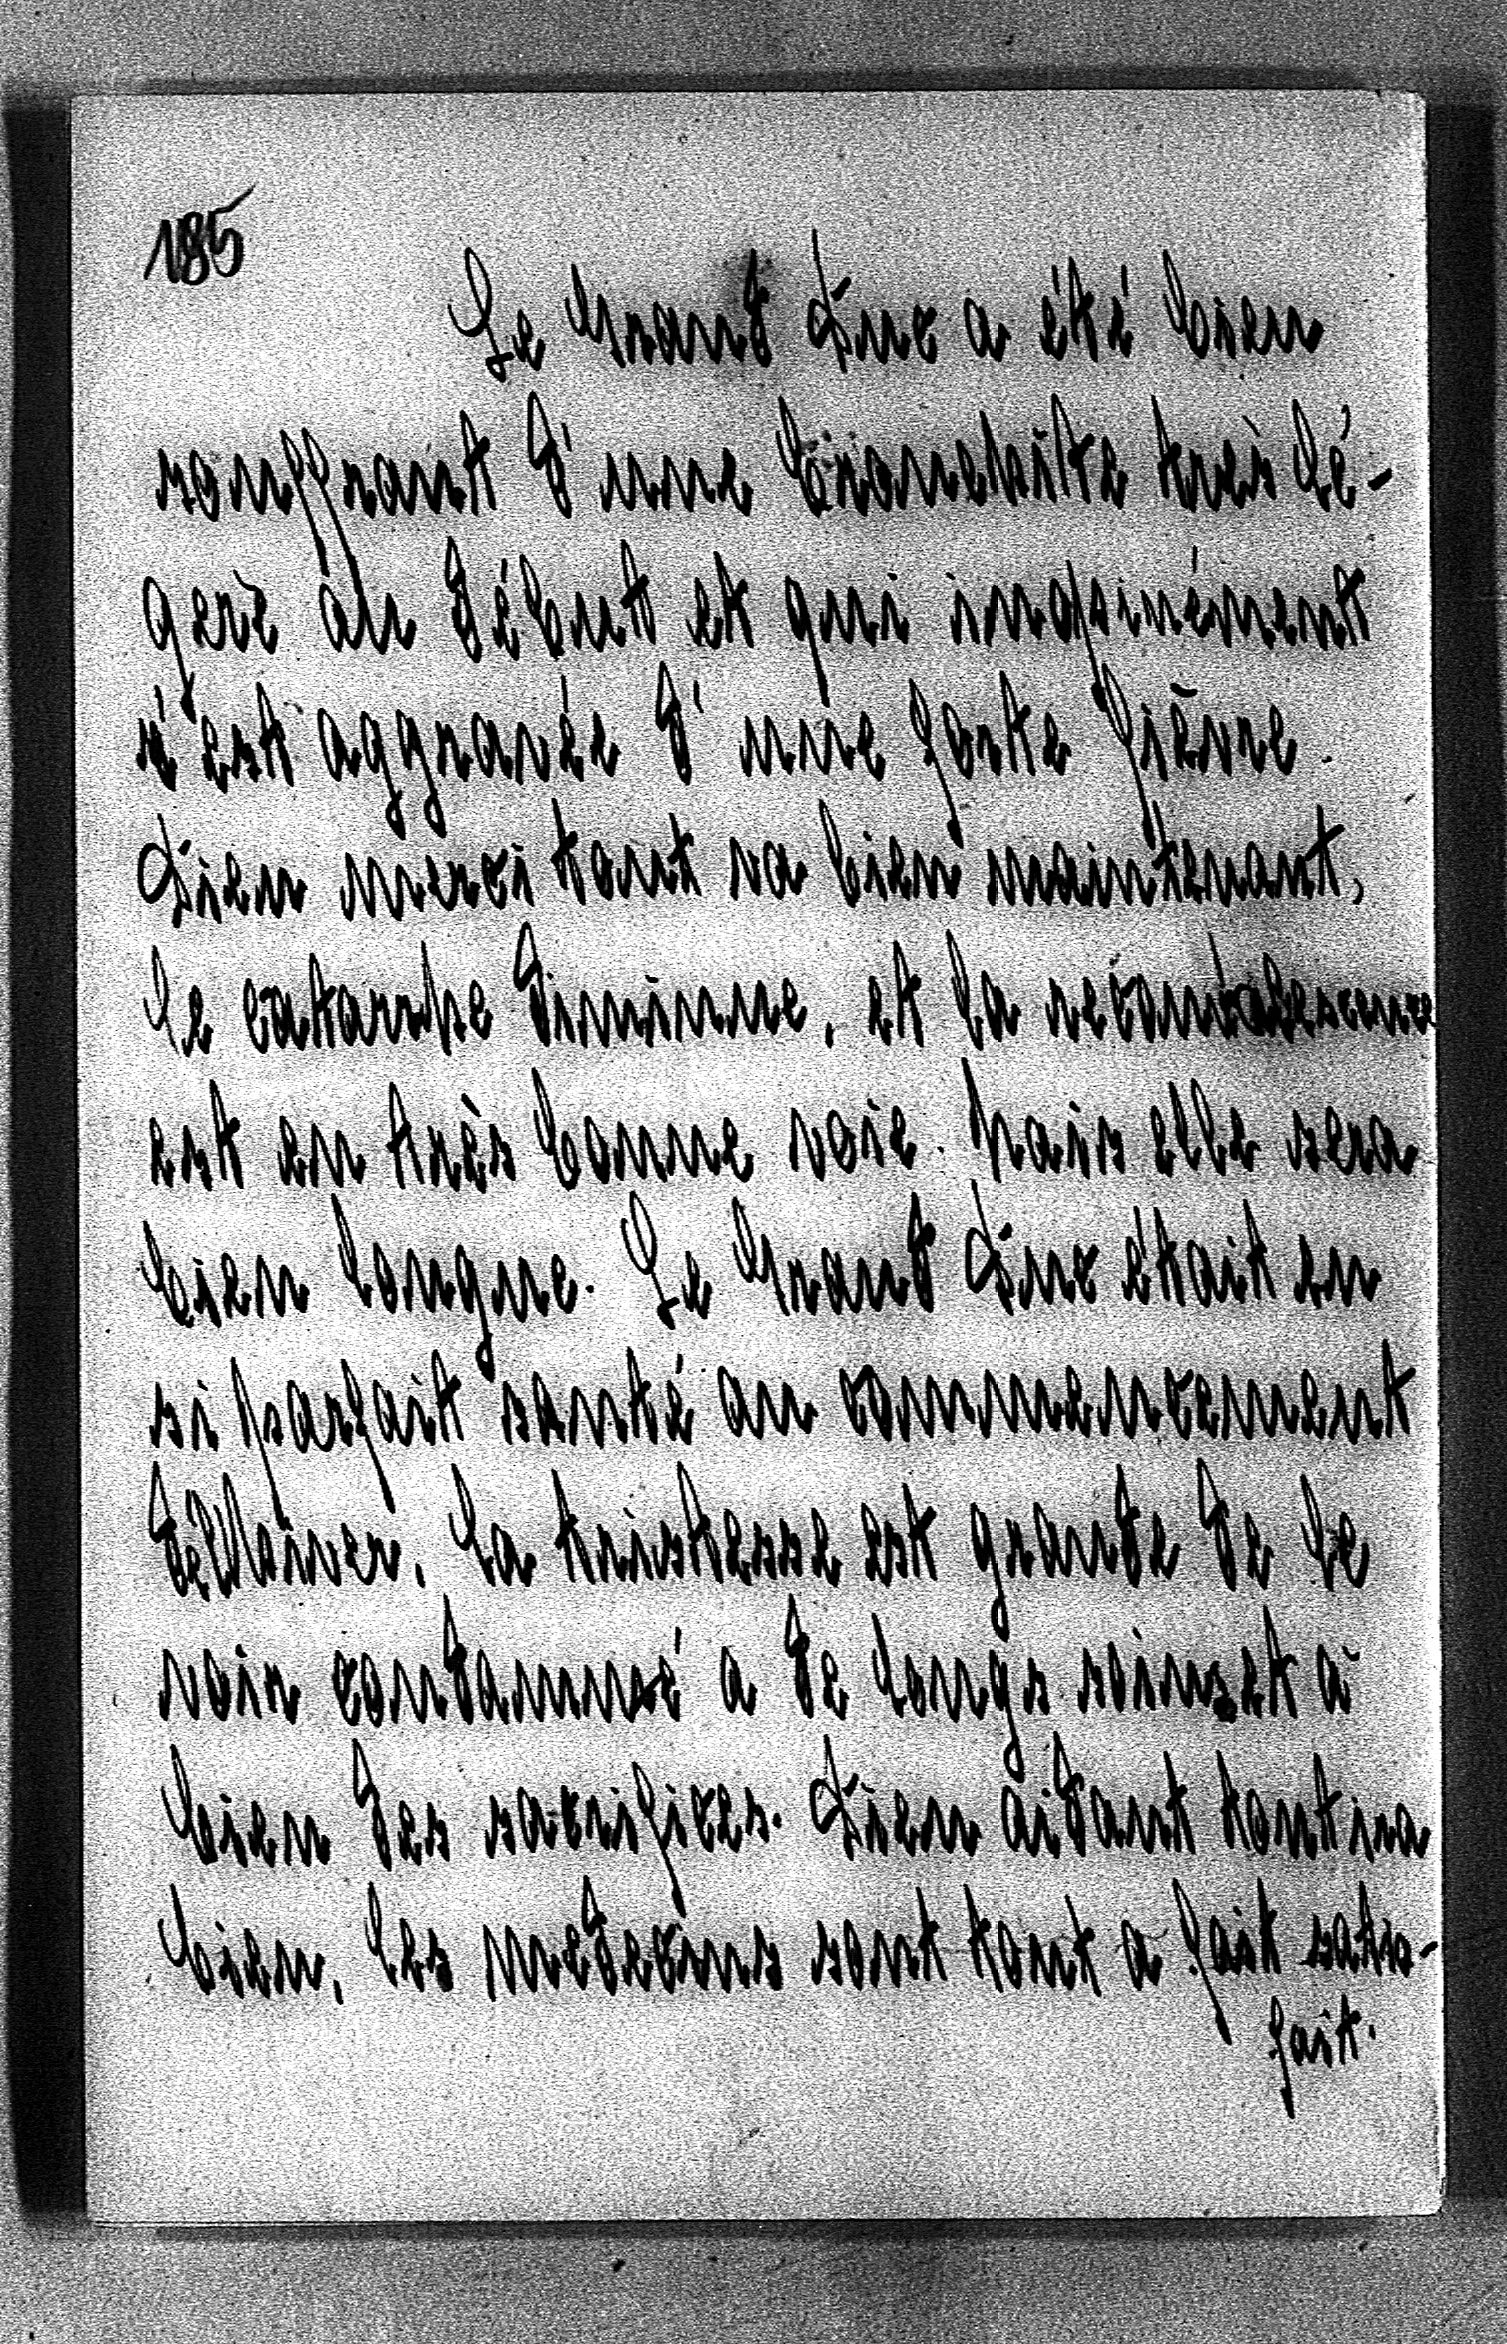 185
Le Grand Duc a été bien
souffrant d'une bronchite très lé-
gère au début et qui inopinément
s'est aggravée d'une forte fièvre.
Dieu merci tout va bien maintenant,
le catarrhe diminue, et la reconvalescence
est en très bonne voie. Mais elle sera
bien longue. Le Grand Duc était en
si parfait santé au commencement
. La tristesse est grande de le
voir condamné a de longs soins et à
bien des sacrifices. Dieu aidant tout ira
bien, les médecins sont tout a fait satis-
fait.